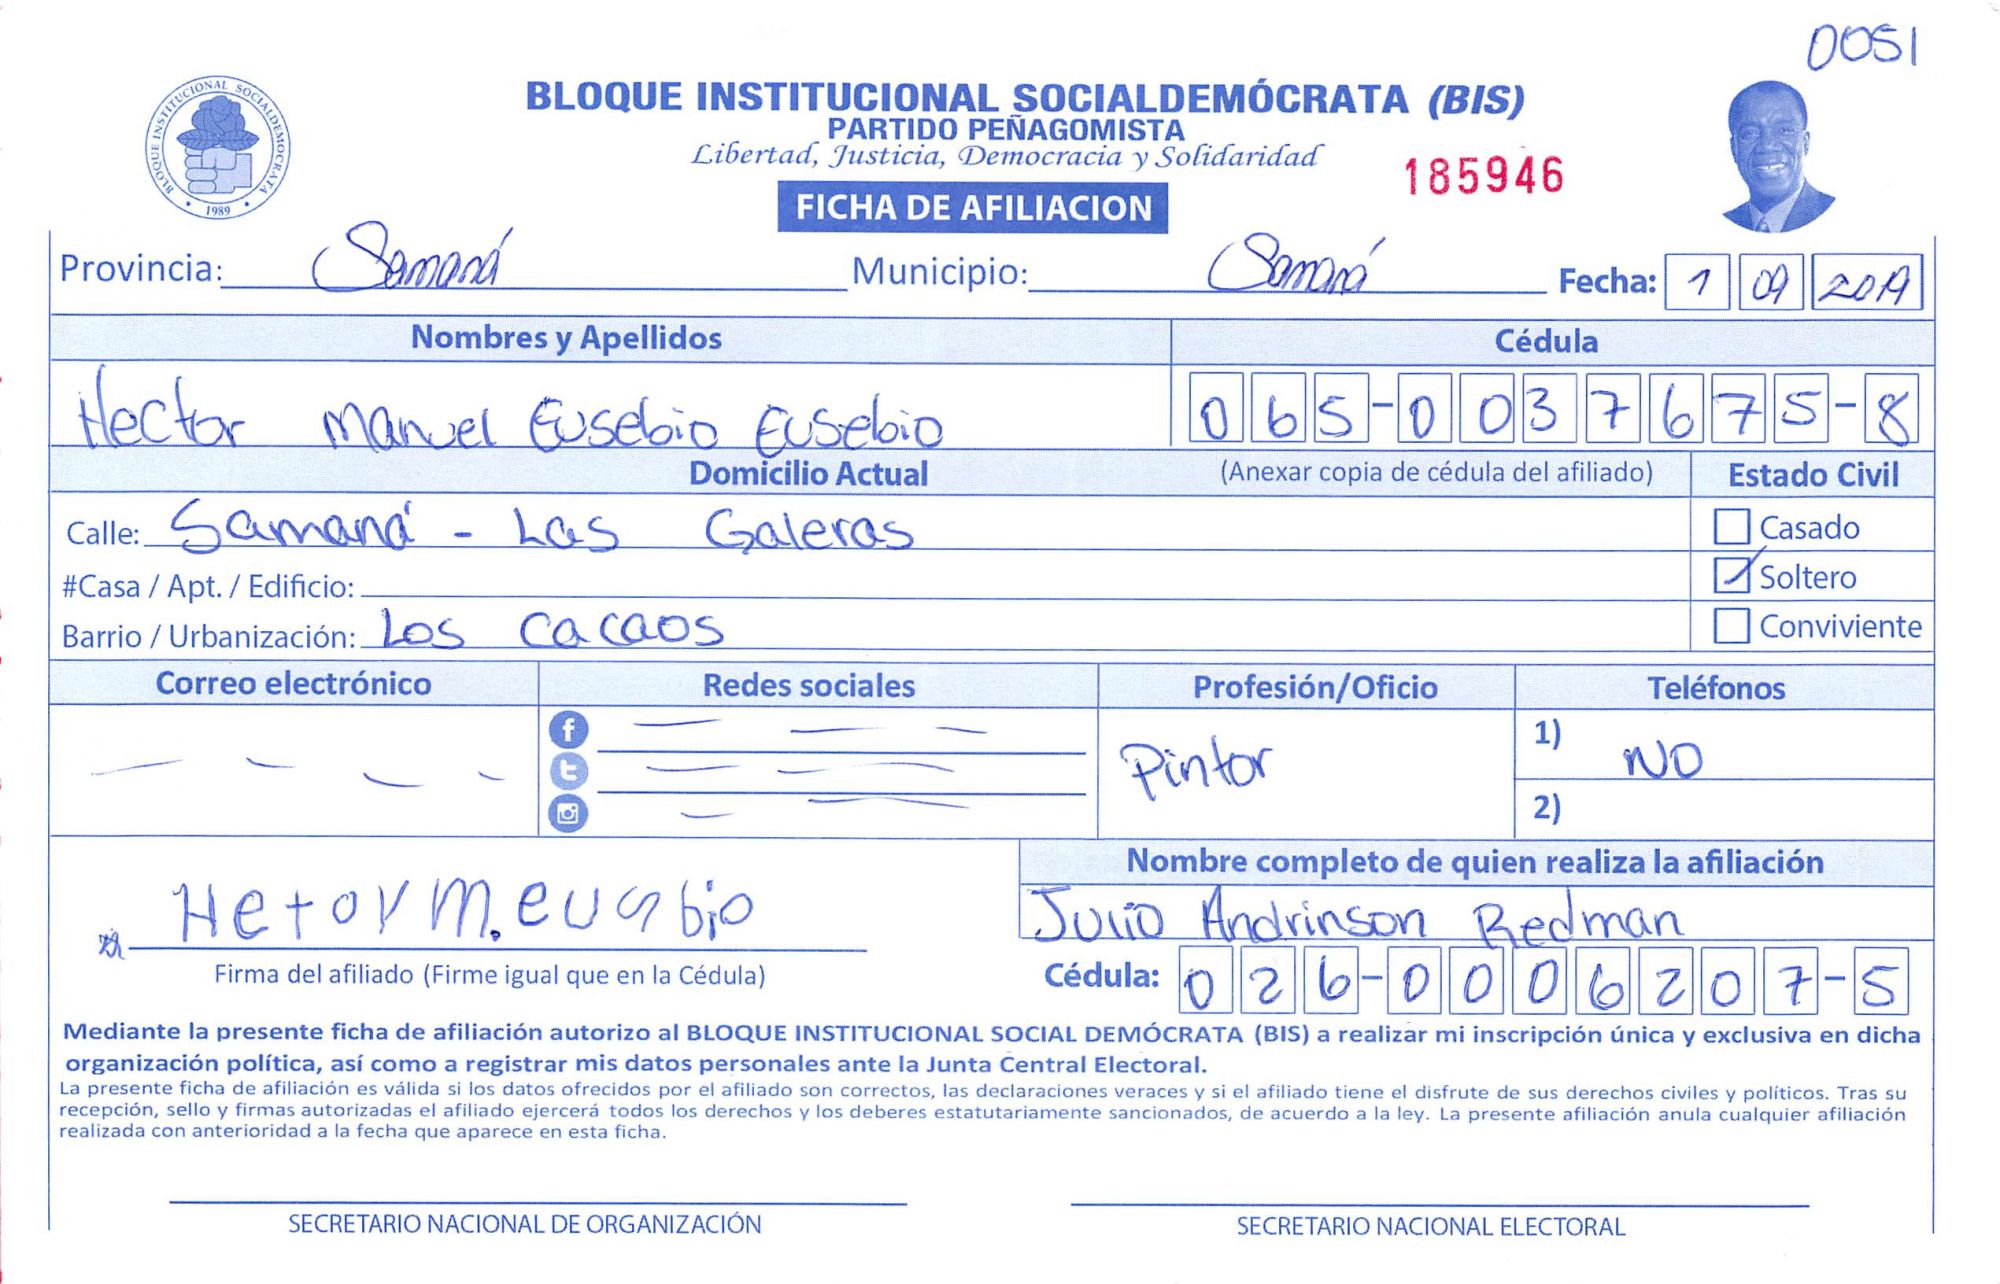 0051
BLOQUE INSTITUCIONAL SOCIALDEMOCRATA
1989
BLOQUE INSTITUCIONAL SOCIALDEMÓCRATA (BIS)
PARTIDO PEÑAGOMISTA
Libertad, Justicia, Democracia y Solidaridad
185946
FICHA DE AFILIACION
Provincia: Samaná Municipio: Samaná Fecha: 1 09 2019
Nombres y Apellidos Cédula
Hector Manuel Eusebio Eusebio 065-0037675-8
Domicilio Actual (Anexar copia de cédula del afiliado) Estado Civil
Calle: Samaná - Las Galeras Casado
#Casa / Apt. / Edificio: Soltero
Barrio / Urbanización: Los Cacaos Conviviente
Correo electrónico Redes sociales Profesión/Oficio Teléfonos
Pintor 1) NO
2)
Nombre completo de quien realiza la afiliación
Hetor M. eusebio Julio Andrinson Redman
Firma del afiliado (Firme igual que en la Cédula) Cédula: 026-0006207-5
Mediante la presente ficha de afiliación autorizo al BLOQUE INSTITUCIONAL SOCIAL DEMÓCRATA (BIS) a realizar mi inscripción única y exclusiva en dicha
organización política, así como a registrar mis datos personales ante la Junta Central Electoral.
La presente ficha de afiliación es válida si los datos ofrecidos por el afiliado son correctos, las declaraciones veraces y si el afiliado tiene el disfrute de sus derechos civiles y políticos. Tras su
recepción, sello y firmas autorizadas el afiliado ejercerá todos los derechos y los deberes estatutariamente sancionados, de acuerdo a la ley. La presente afiliación anula cualquier afiliación
realizada con anterioridad a la fecha que aparece en esta ficha.
SECRETARIO NACIONAL DE ORGANIZACIÓN SECRETARIO NACIONAL ELECTORAL